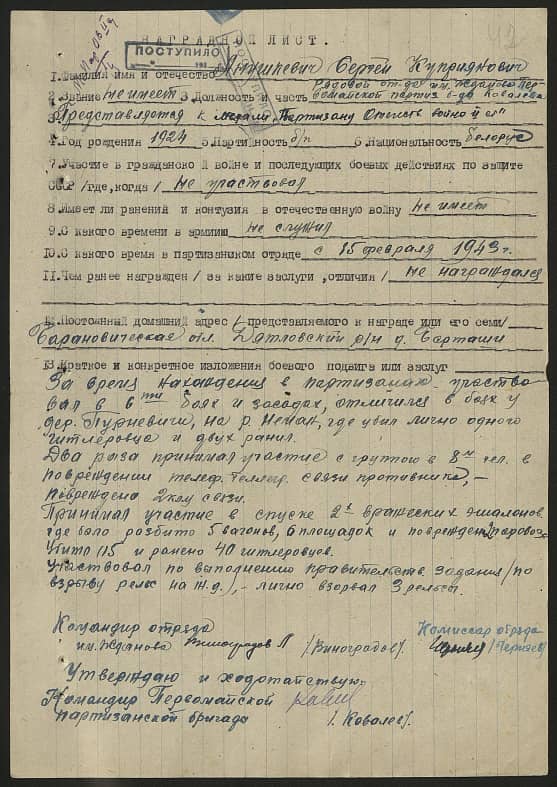 НАГРАДНОЙ ЛИСТ.
42
ПОСТУПИЛО
1.Фамилия имя и отчество Сергей Куприянович
2.Звание не имеет 3.Должность и часть рядовой от-да им. Жданова Перво-
майской партиз б-да Ковалева
Представляется к медали „Партизану Отечеств войны II ст"
4.Год рождения 1924 5.Партийность б/п 6.Национальность белорус
7.Участие в гражданской войне и последующих боевых действиях по защите
СССР /где,когда/ не участвовал
8.Имеет ли ранений и контузия в отечественную войну не имеет
9.С какого времени в армиию не служил
10.С какого время в партизанском отряде с 15 февраля 1943 г.
11.Чем ранее награжден / за какие заслуги ,отличия/ не награждался
12.Постоянный домашний адрес /представляемого к награде или его семи/
Барановическая обл. Дятловский р/н д. Барташи
13.Краткое и конкретное изложения боевого подвига или заслуг
За время нахождения в партизанах участво
вал в 6ти боях и засадах, отличился в боях у
дер. Пуркевичи, на р. Неман, где убил лично одного
гитлеровца и двух ранил.
Два раза принимал участие с группой в 8м чел. в
повреждении телеф. телегр. связи противника, –
повреждено 2 клм связи.
Принимал участие в спуске 2х вражеских эшалонов
где было розбито 5 вагонов, 6 площадок и поврежден 2 паровоза
Убито 115 и ранено 40 гитлеровцев.
Участвовал по выполнению правительств. задания /по
взрыву рельс на ж.д./, – лично взорвал 3 рельсы.
Командир отряда
им. Жданова Виноградов /Виноградов/.
Комиссар отряда
/Черняев/
Утверждаю и ходотайствую
Командир Первомайской
партизанской бригада /. Ковалев/.